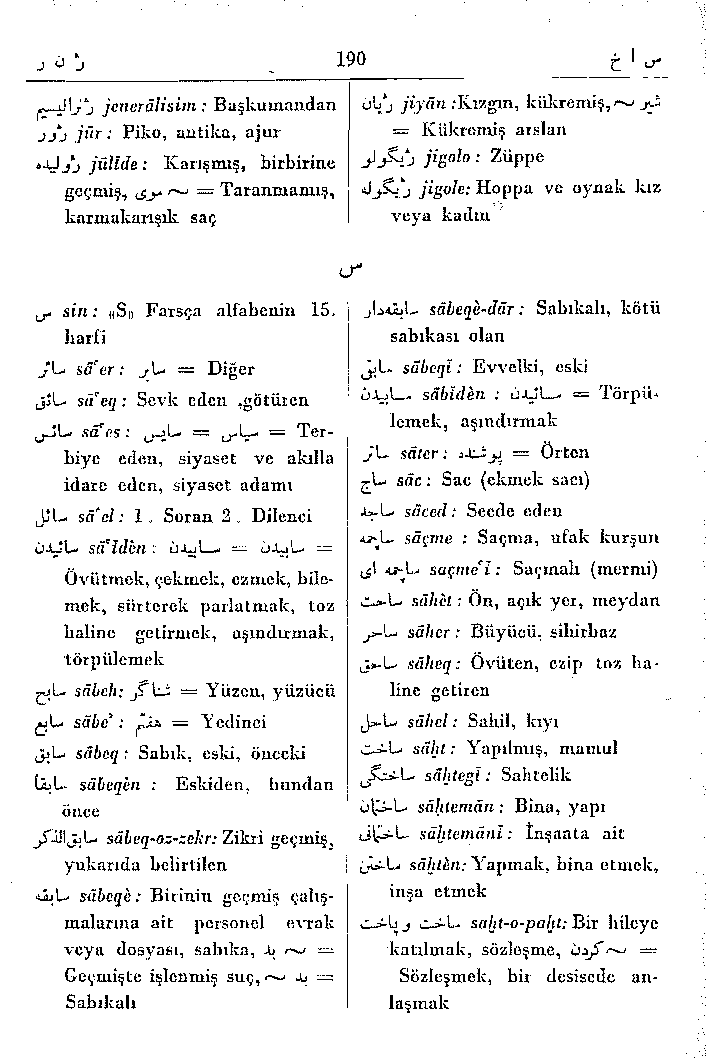 ژ ن ر 190 س ا خ
ژنرالیسم jenerālisim : Başkumandan
ژور jūr : Piko, antika, ajur
ژولیده jūlīde : Karışmış, birbirine
geçmiş, موی ~ = Taranmamış,
karmakarışık saç
ژیان jiyān :Kızgın, kükremiş, ~ شیر
= Kükremiş arslan
ژیگولو jigolo : Züppe
ژیگوله jigole: Hoppa ve oynak kız
veya kadın
س
س sin : «S» Farsça alfabenin 15.
harfi
سائر sā'er : سایر = Diğer
سائق sā'eq : Sevk eden ,götüren
سائس sā'es : سایس = سیاس = Ter-
biye eden, siyaset ve akılla
idare eden, siyaset adamı
سائل sā'el : 1 . Soran 2 . Dilenci
سائیدن sā'īdèn : سابیدن = ساییدن =
Övütmek, çekmek, ezmek, bile-
mek, sürterek parlatmak, toz
haline getirmek, aşındırmak,
törpülemek
سابح sābeh: شناگر = Yüzen, yüzücü
سابع sābe' : هفتم = Yedinci
سابق sābeq : Sabık, eski, önceki
سابقا sābeqèn : Eskiden, bundan
önce
سابق الذکر sābeq-oz-zekr: Zikri geçmiş,
yukarıda belirtilen
سابقه sābeqè : Birinin geçmiş çalış-
malarına ait personel evrak
veya dosyası, sabıka, بد ~ =
Geçmişte işlenmiş suç, ~ بد =
Sabıkalı
سابقه‌دار sābeqè-dār : Sabıkalı, kötü
sabıkası olan
سابقی sābeqī : Evvelki, eski
سابیدن sābīdèn : سائیدن = Törpü-
lemek, aşındırmak
ساتر sāter : پوشنده = Örten
ساج sāc : Sac (ekmek sacı)
ساجد sāced : Secde eden
ساچمه sāçme : Saçma, ufak kurşun
ساچمه ای saçme'ī : Saçmalı (mermi)
ساحت sāhèt : Ön, açık yer, meydan
ساحر sāher : Büyücü, sihirbaz
ساحق sāheq : Övüten, ezip toz ha-
line getiren
ساحل sāhel : Sahil, kıyı
ساخت sāḫt : Yapılmış, mamul
ساختگی sāḫtegī : Sahtelik
ساختمان sāḫtemān : Bina, yapı
ساختمانی sāḫtemānī : İnşaata ait
ساختن sāḫtèn: Yapmak, bina etmek,
inşa etmek
ساخت و پاخت saḫt-o-paḫt: Bir hileye
katılmak, sözleşme, کردن ~ =
Sözleşmek, bir desisede an-
laşmak